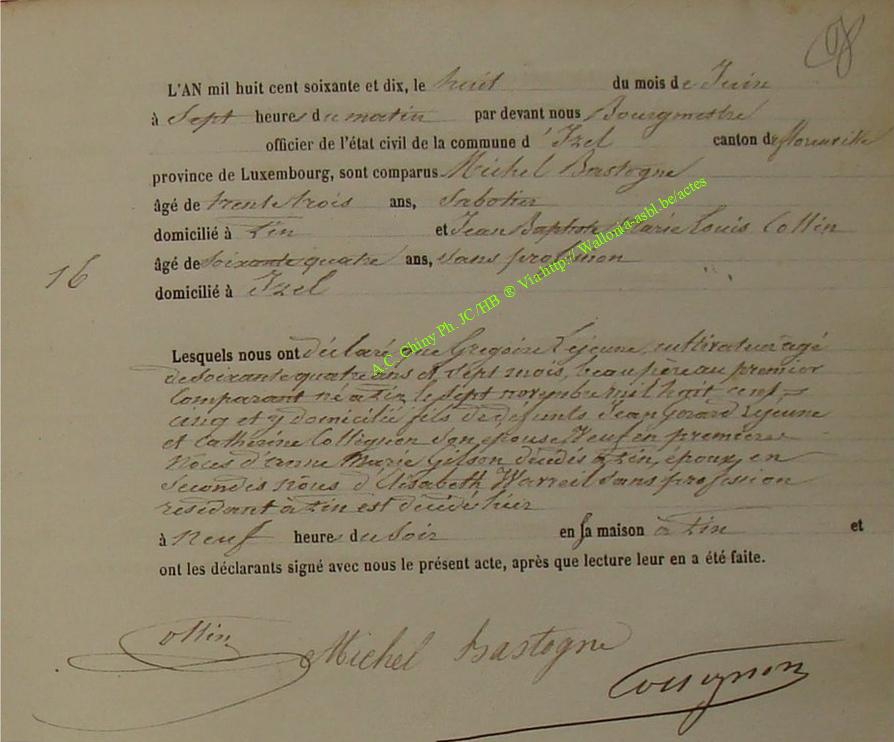 98
L'AN mil huit cent soixante et dix, le huit du mois de Juin
à Sept heures du matin par devant nous Bourgmestre
officier de l'état civil de la commune d'Izel canton de florenville
province de Luxembourg, sont comparus Michel Bastogne
âgé de trente trois ans, Sabotier
domicilié à Pin et Jean Baptiste Marie Louis Collin
16
âgé de soixante quatre ans, sans profession
domicilié à Izel
Lesquels nous ont déclaré que Grégoire Lejeune, cultivateur âgé
de soixante quatre ans et sept mois, beau père au premier
Comparant né à Pin le sept novembre mil huit cent
cinq et y domicilié fils de defunts Jean Gérard Lejeune
et Catherine Collignon son epouse, Veuf en premieres
Noces d'anne Marie Gilson décédée à Pin, époux en
Secondes Noces d'Elisabeth sans profession
résidant à Pin est décédé hier
à Neuf heures du Soir en sa maison à Pin et
ont les déclarants signé avec nous le présent acte, après que lecture leur en a été faite.
Collin
Michel Bastogne
A.C. Chiny Ph. JC/HB ® Via http://Wallonia-asbl.be/actes